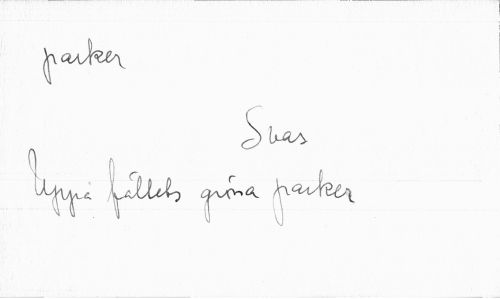 parker
Svas
Uppå fältets gröna parker